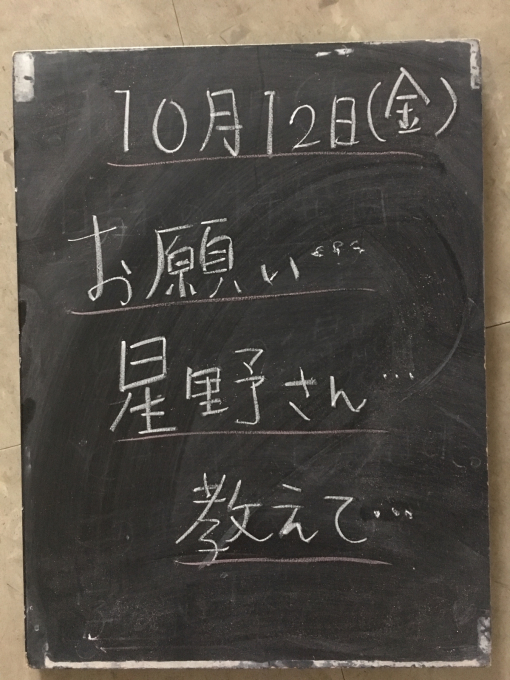 10月12日(金)
お願い…
星野さん…
教えて…